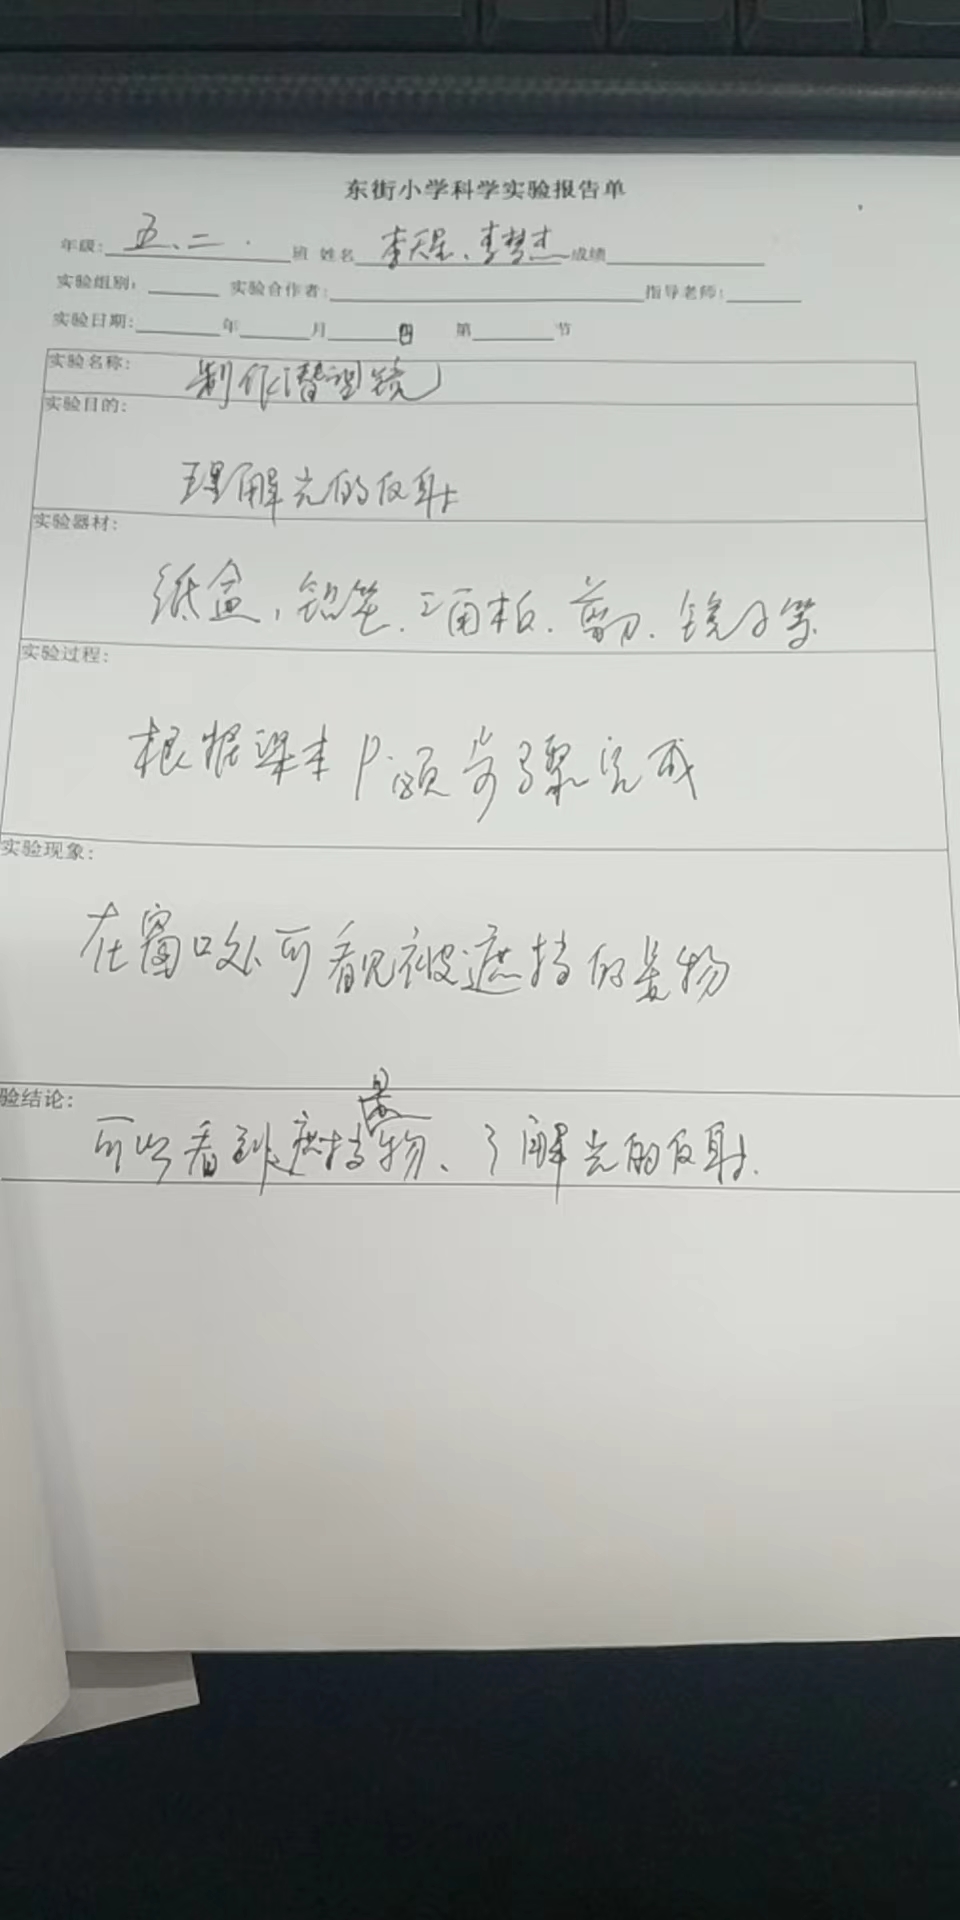 东街小学科学实验报告单
年级: 五、二. 班 姓名 李天星、李梦杰 成绩
实验组别: 实验合作者: 指导老师:
实验日期: 年 月 日 第 节
实验名称: 制作潜望镜
实验目的:
理解光的反射
实验器材:
纸盒、铅笔、三角板、剪刀、镜子等
实验过程:
根据课本P 页步骤完成
实验现象:
在窗口处可看见被遮挡的景物
验结论:
可以看到遮挡景物、了解光的反射.